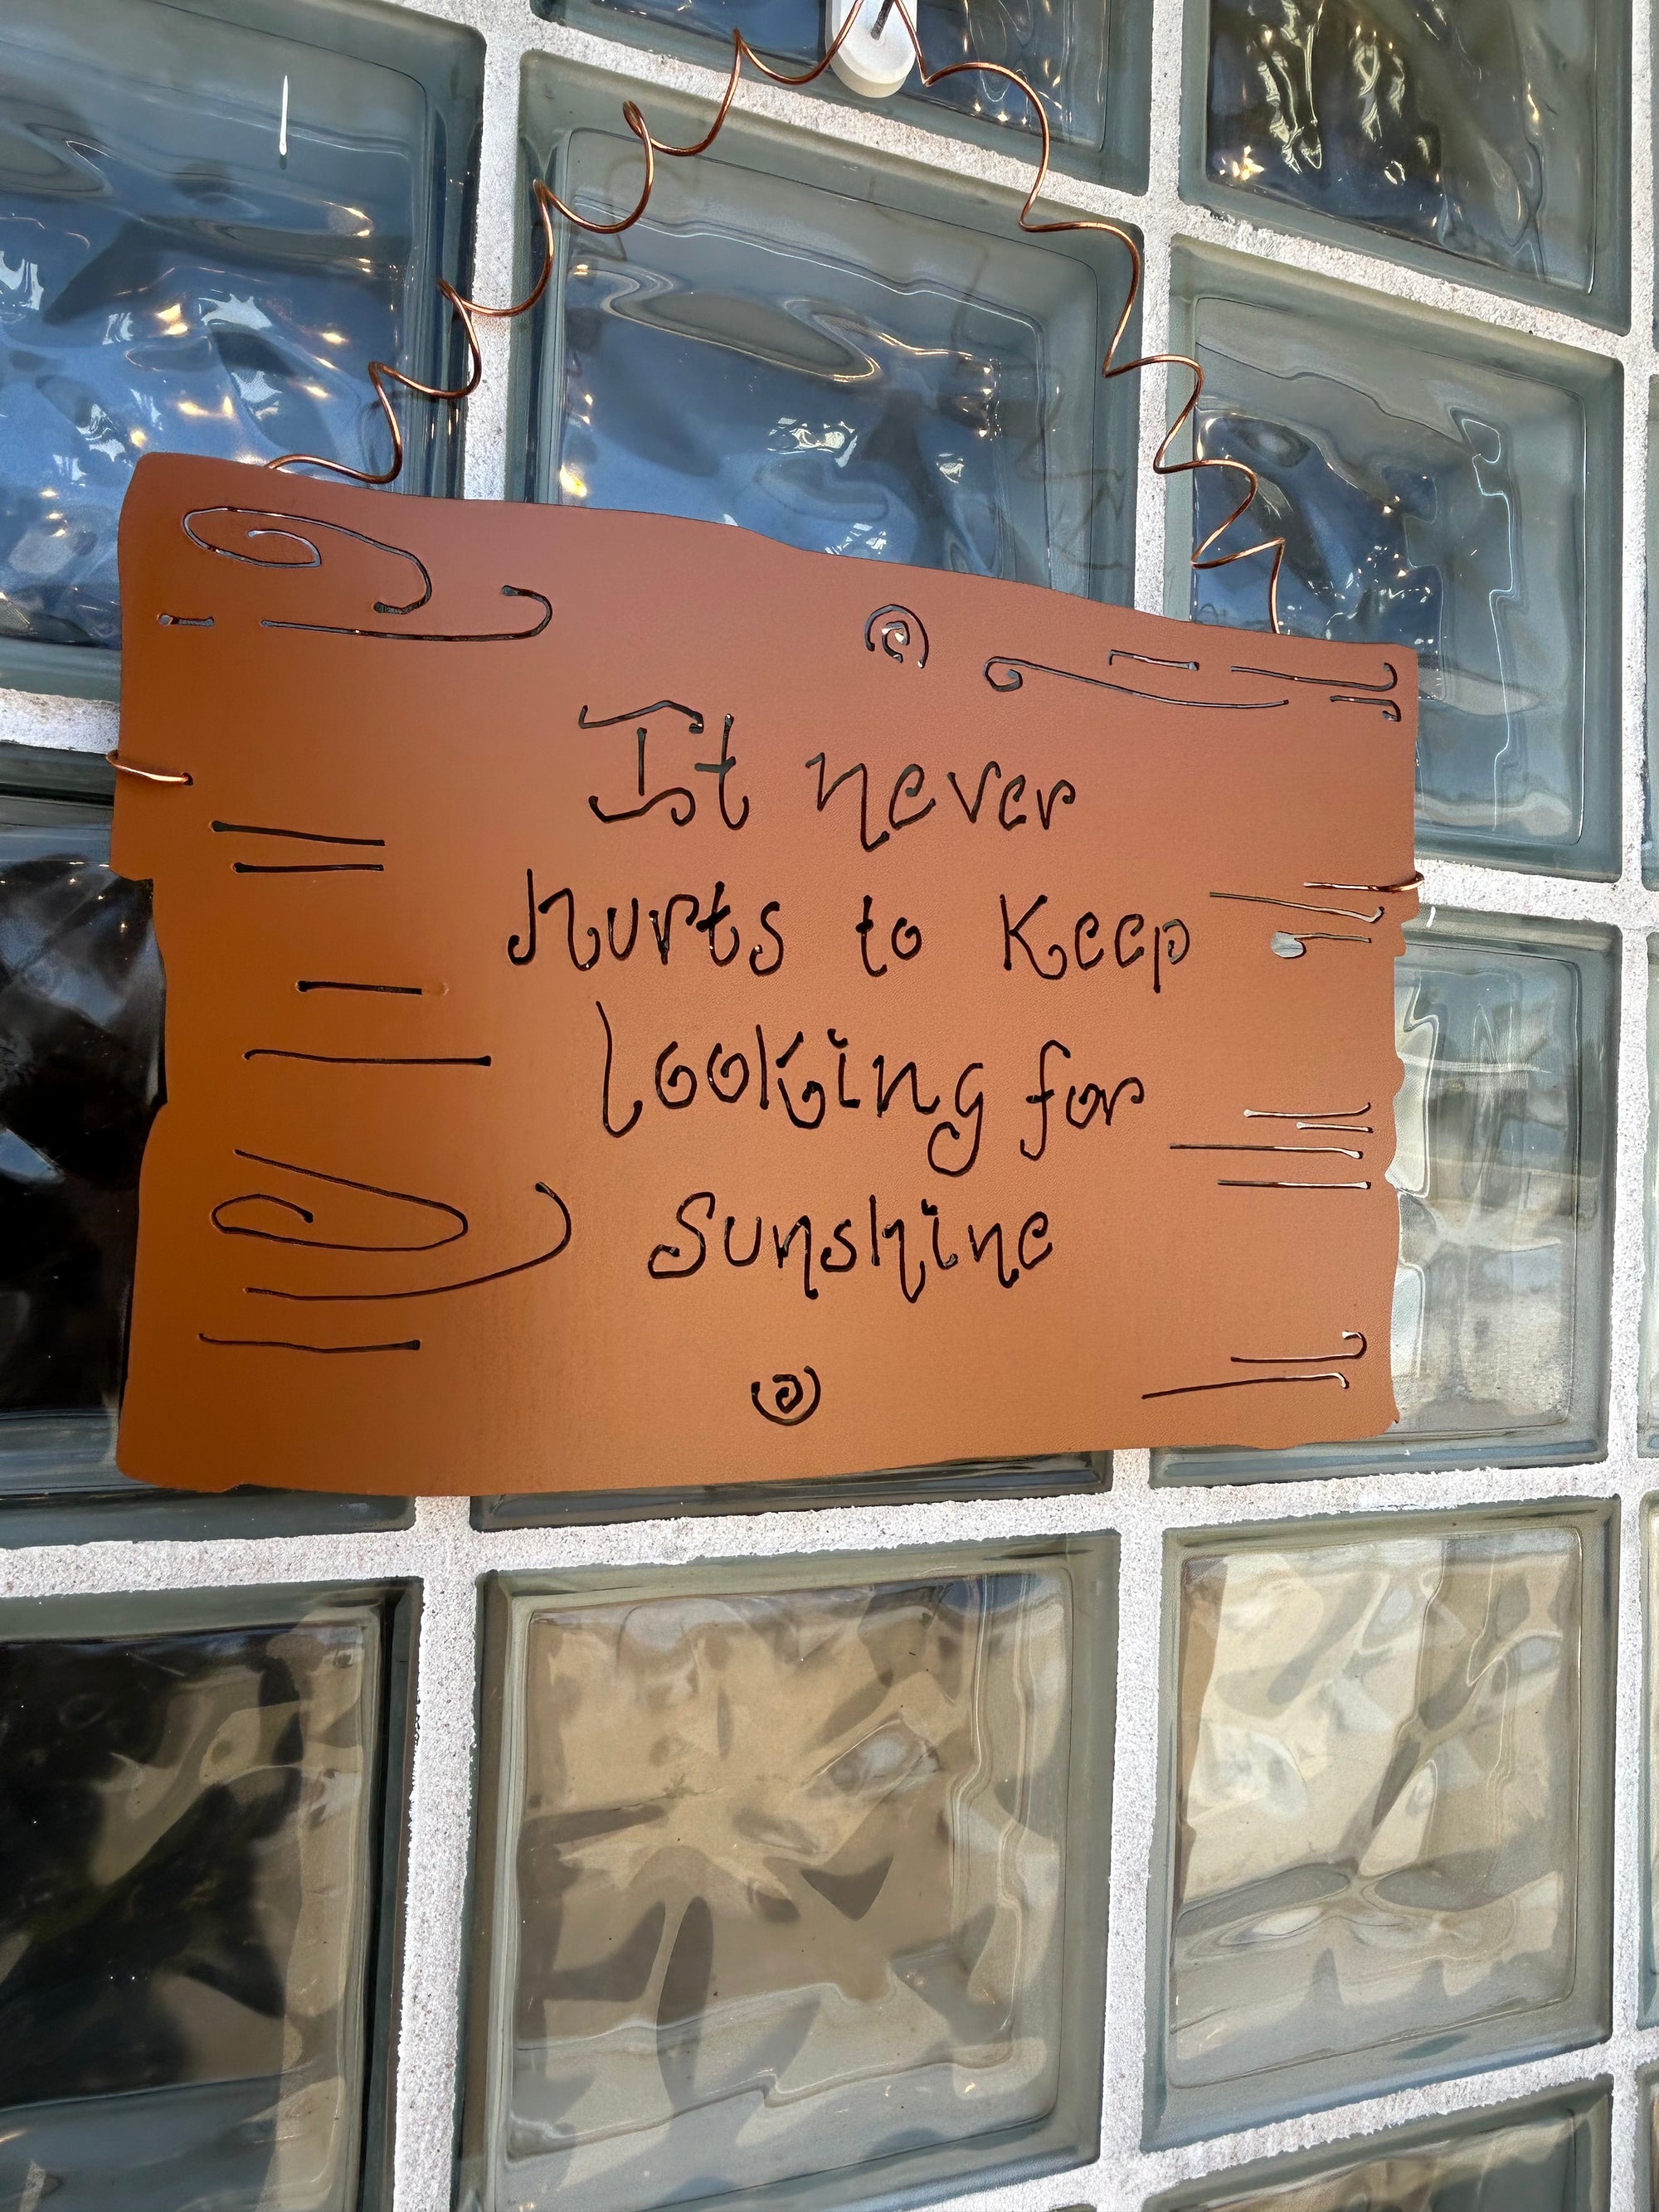 It never
hurts to Keep
looking for
Sunshine